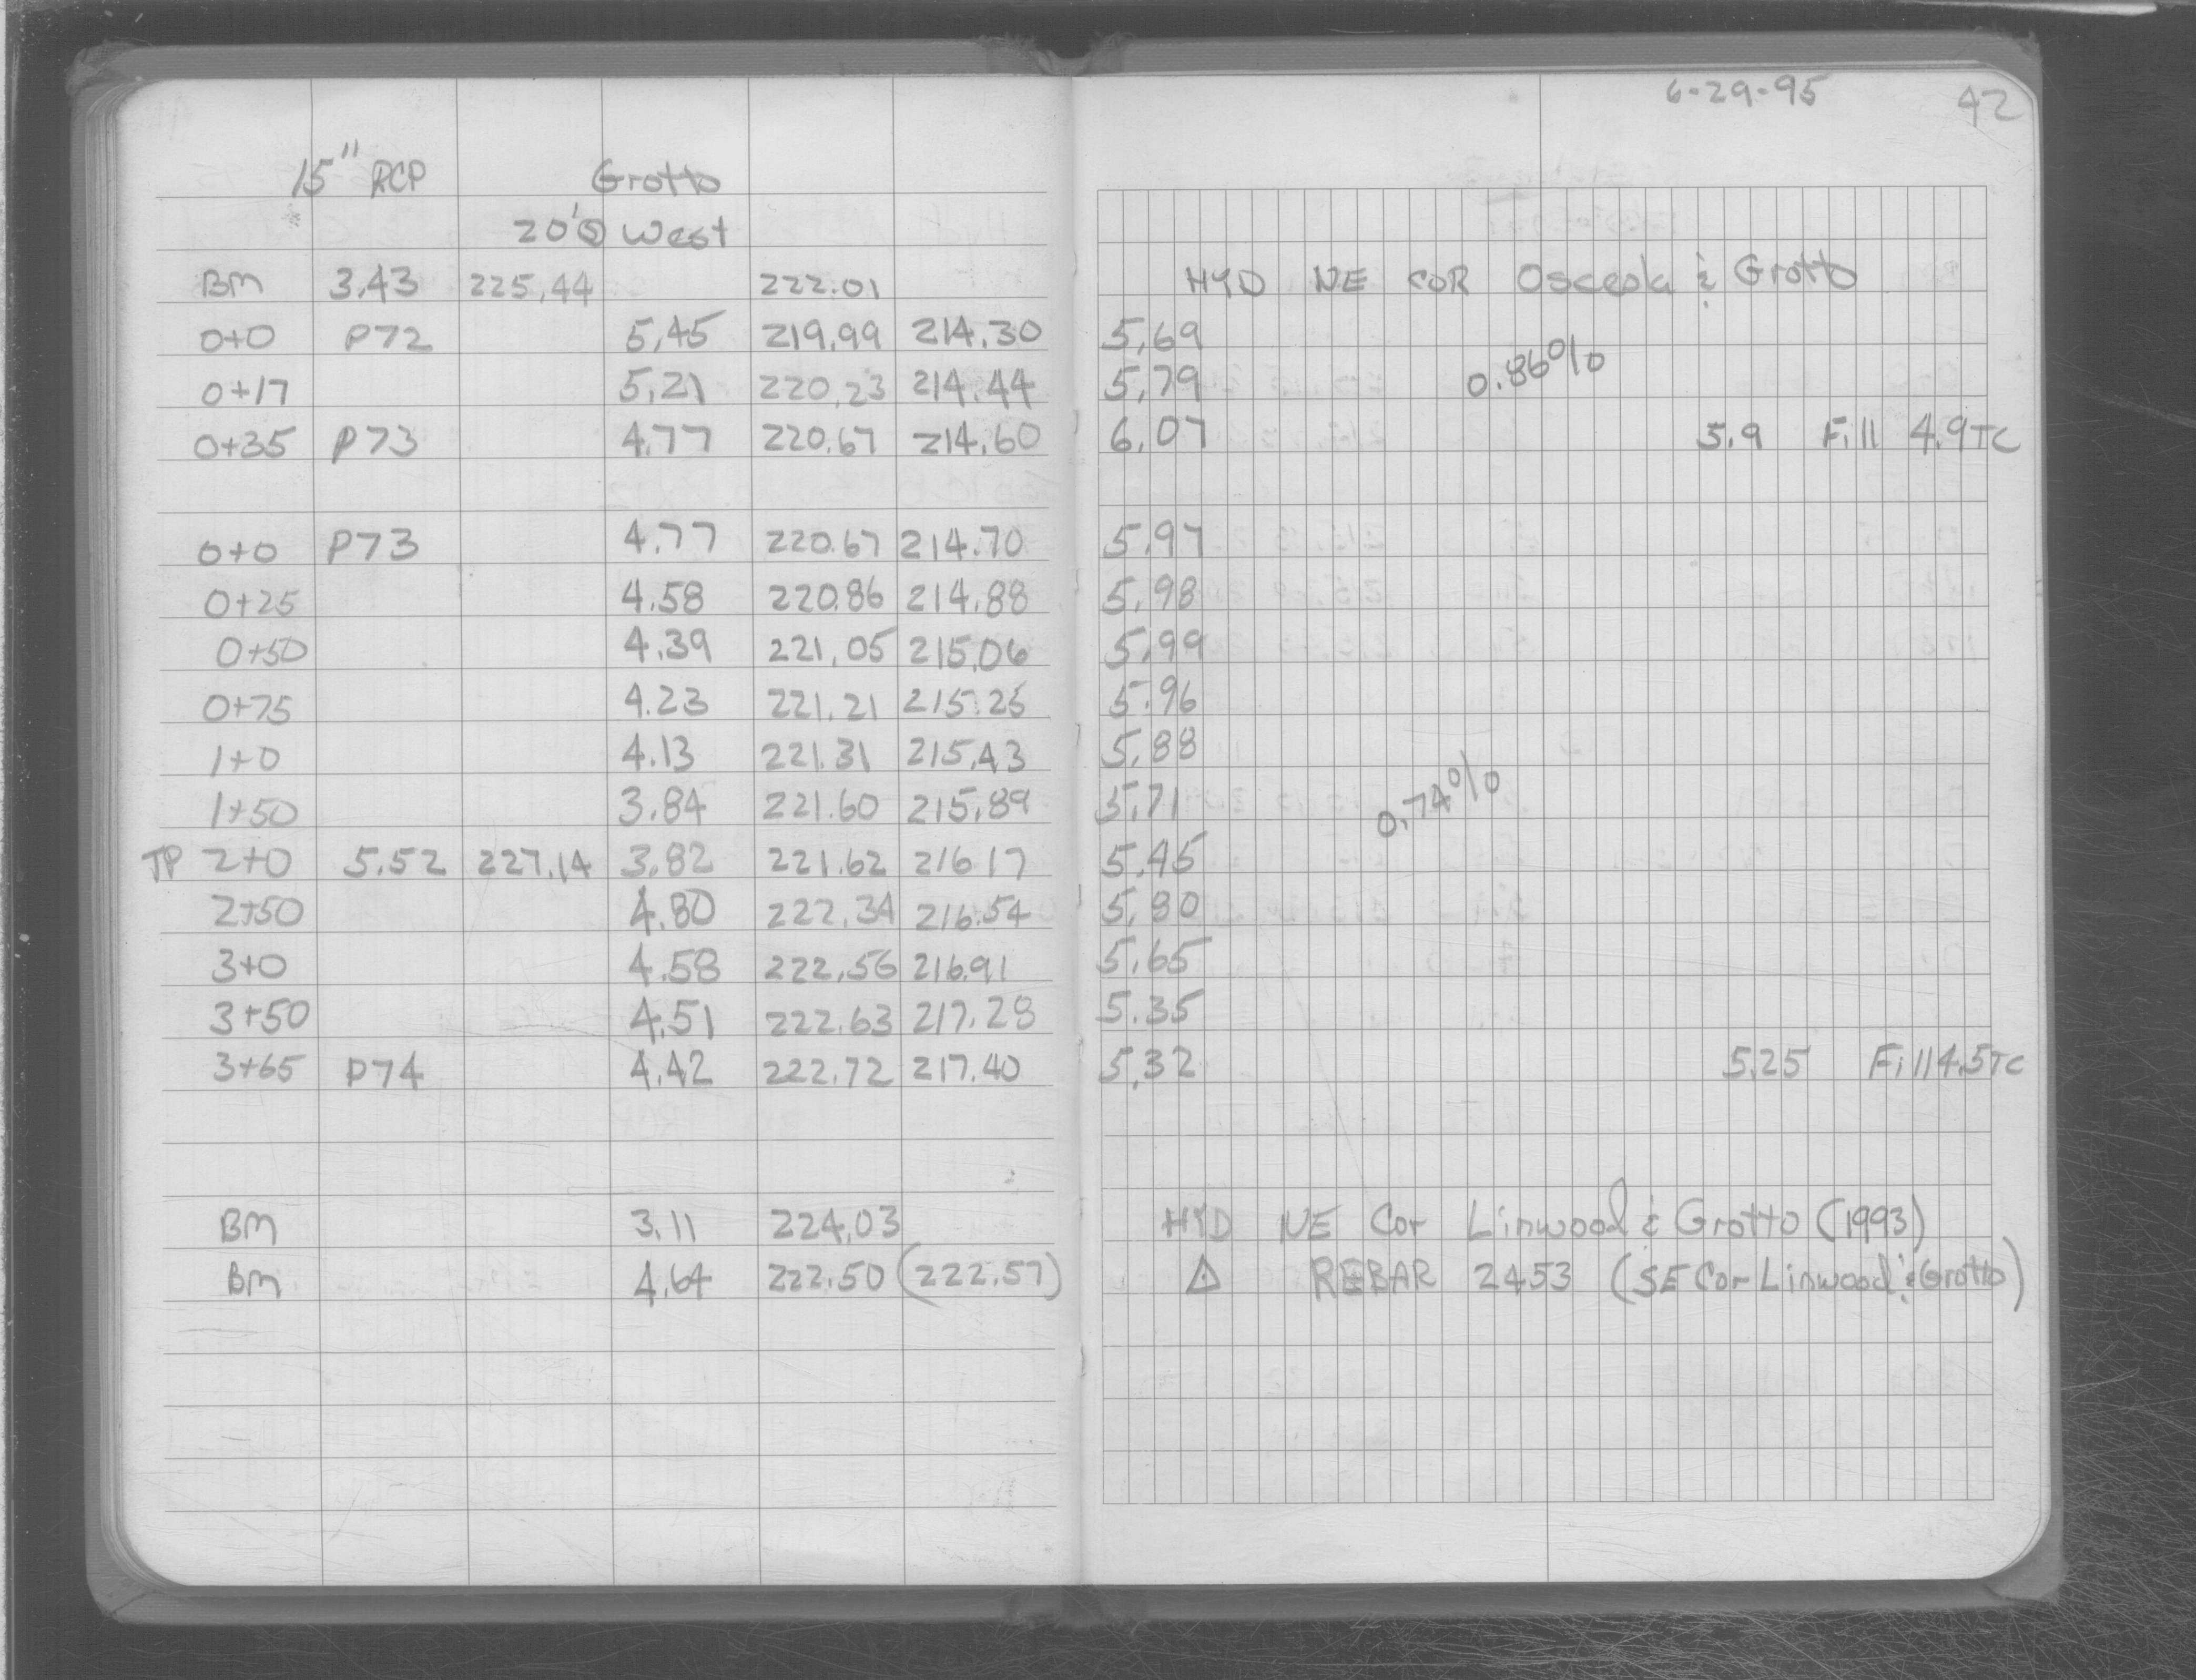 6-29-95 42
15" RCP Grotto
20'⊚ West
BM 3.43 225.44 222.01 HYD NE COR Osceola & Grotto
0+0 P72 5.45 219.99 214.30 5.69
0.86%
0+17 5.21 220.23 214.44 5.79
0+35 P73 4.77 220.67 214.60 6.07 5.9 Fill 4.9TC
0+0 P73 4.77 220.67 214.70 5.97
0+25 4.58 220.86 214.88 5.98
0+50 4.39 221.05 215.06 5.99
0+75 4.23 221.21 215.25 5.96
1+0 4.13 221.31 215.43 5.88
1+50 3.84 221.60 215.89 5.71
0.74%
TP 2+0 5.52 227.14 3.82 221.62 216.17 5.45
2+50 4.80 222.34 216.54 5.80
3+0 4.58 222.56 216.91 5.65
3+50 4.51 222.63 217.28 5.35
3+65 P74 4.42 222.72 217.40 5.32 5.25 Fill 4.5TC
BM 3.11 224.03 HYD NE Cor Linwood & Grotto (1993)
BM 4.64 222.50 (222.57) △ REBAR 2453 (SE Cor Linwood & Grotto)